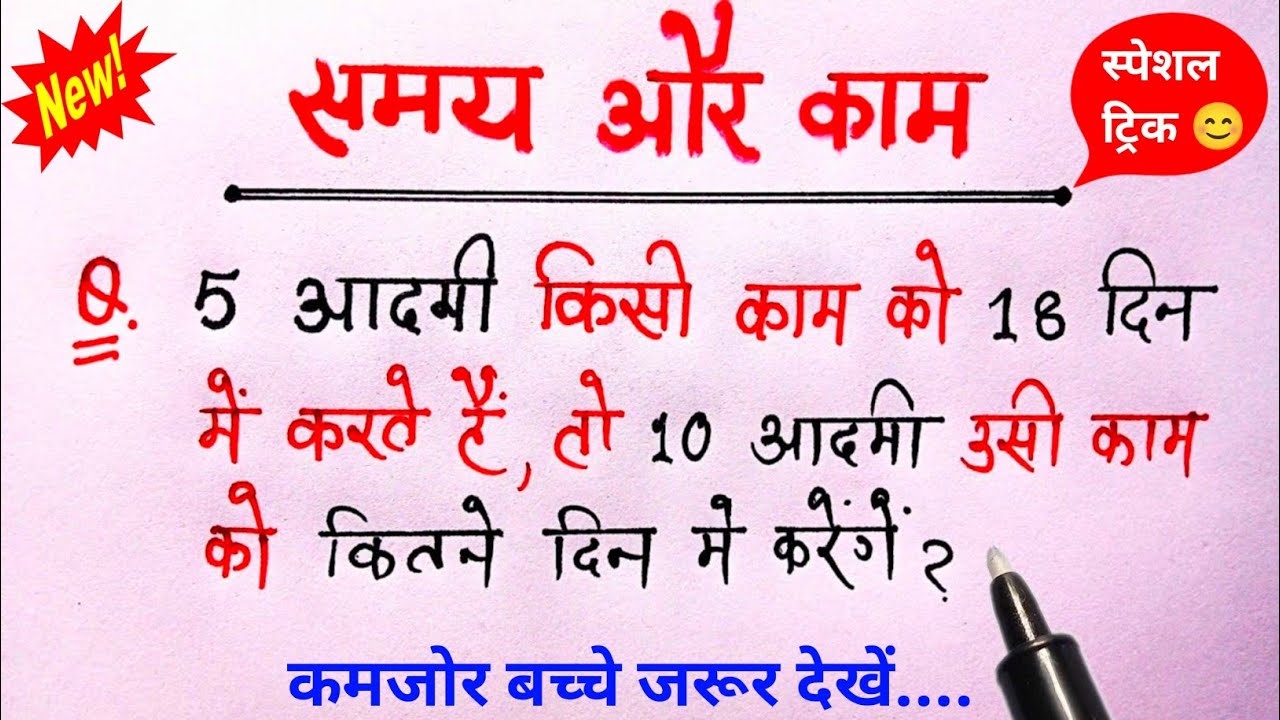 New!
समय और काम
स्पेशल
ट्रिक 😊
Q. 5 आदमी किसी काम को 18 दिन
में करते हैं, तो 10 आदमी उसी काम
को कितने दिन मे करेंगें?
कमजोर बच्चे जरूर देखें....